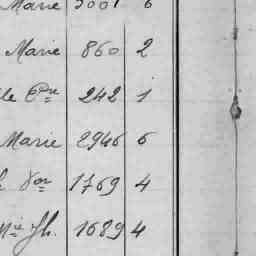 Marie 3001 6
Marie 860 2
lle Cne 242 1
Marie 2946 6
von 1769 4
Mie Jh. 1689 4